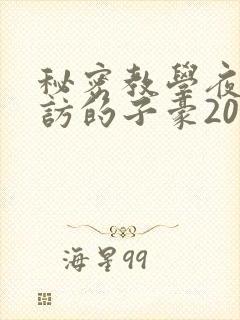 秘密教學夜
訪的子豪20
海星99